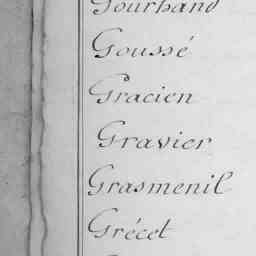 Gourhand
Goussé
Gracien
Gravier
Grasmenil
Grécet